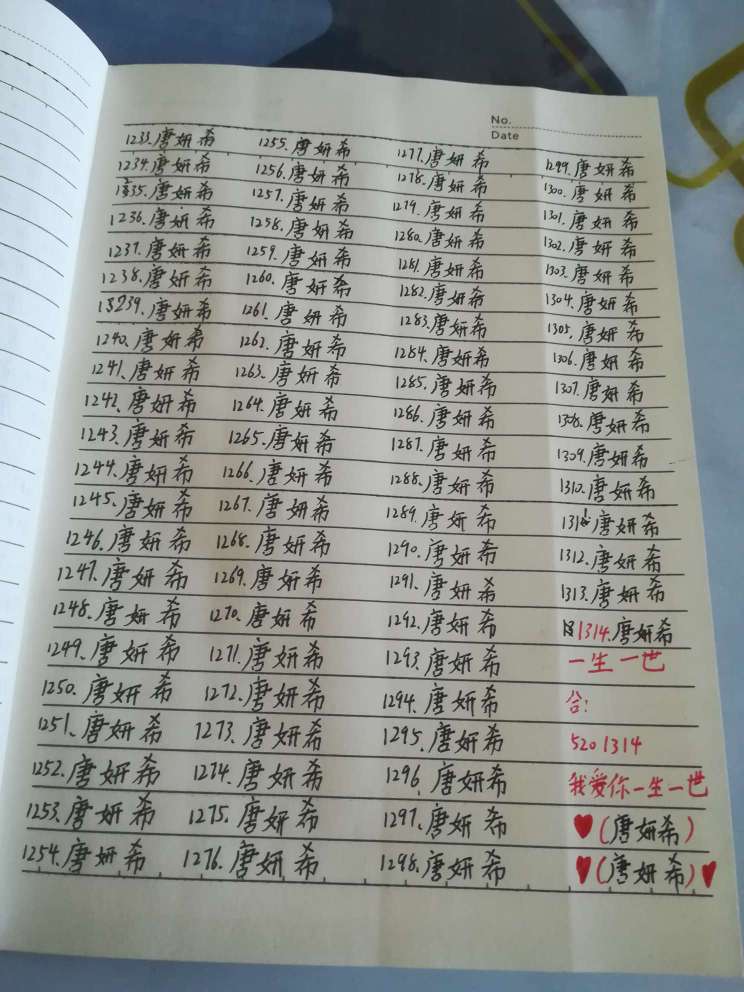 No.
Date
1233.唐妍希
1234.唐妍希
1235.唐妍希
1236.唐妍希
1237.唐妍希
1238.唐妍希
1239.唐妍希
1240.唐妍希
1241.唐妍希
1242.唐妍希
1243.唐妍希
1244.唐妍希
1245.唐妍希
1246.唐妍希
1247.唐妍希
1248.唐妍希
1249.唐妍希
1250.唐妍希
1251.唐妍希
1252.唐妍希
1253.唐妍希
1254.唐妍希
1255.唐妍希
1256.唐妍希
1257.唐妍希
1258.唐妍希
1259.唐妍希
1260.唐妍希
1261.唐妍希
1262.唐妍希
1263.唐妍希
1264.唐妍希
1265.唐妍希
1266.唐妍希
1267.唐妍希
1268.唐妍希
1269.唐妍希
1270.唐妍希
1271.唐妍希
1272.唐妍希
1273.唐妍希
1274.唐妍希
1275.唐妍希
1276.唐妍希
1277.唐妍希
1278.唐妍希
1279.唐妍希
1280.唐妍希
1281.唐妍希
1282.唐妍希
1283.唐妍希
1284.唐妍希
1285.唐妍希
1286.唐妍希
1287.唐妍希
1288.唐妍希
1289.唐妍希
1290.唐妍希
1291.唐妍希
1292.唐妍希
1293.唐妍希
1294.唐妍希
1295.唐妍希
1296.唐妍希
1297.唐妍希
1298.唐妍希
1299.唐妍希
1300.唐妍希
1301.唐妍希
1302.唐妍希
1303.唐妍希
1304.唐妍希
1305.唐妍希
1306.唐妍希
1307.唐妍希
1308.唐妍希
1309.唐妍希
1310.唐妍希
1311.唐妍希
1312.唐妍希
1313.唐妍希
1314.唐妍希
一生一世
合:
5201314
我爱你一生一世
♥(唐妍希)
♥(唐妍希)♥